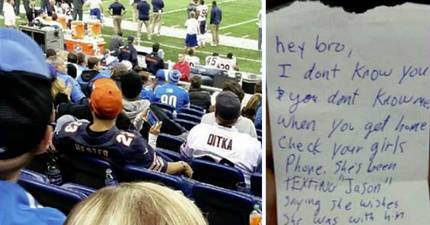 95
90
23
HESTER
DITKA
hey bro,
I dont know you
& you dont know me
when you get home
check your girls
Phone. She's been
TEXTING "Jason"
saying she wishes
She was with him